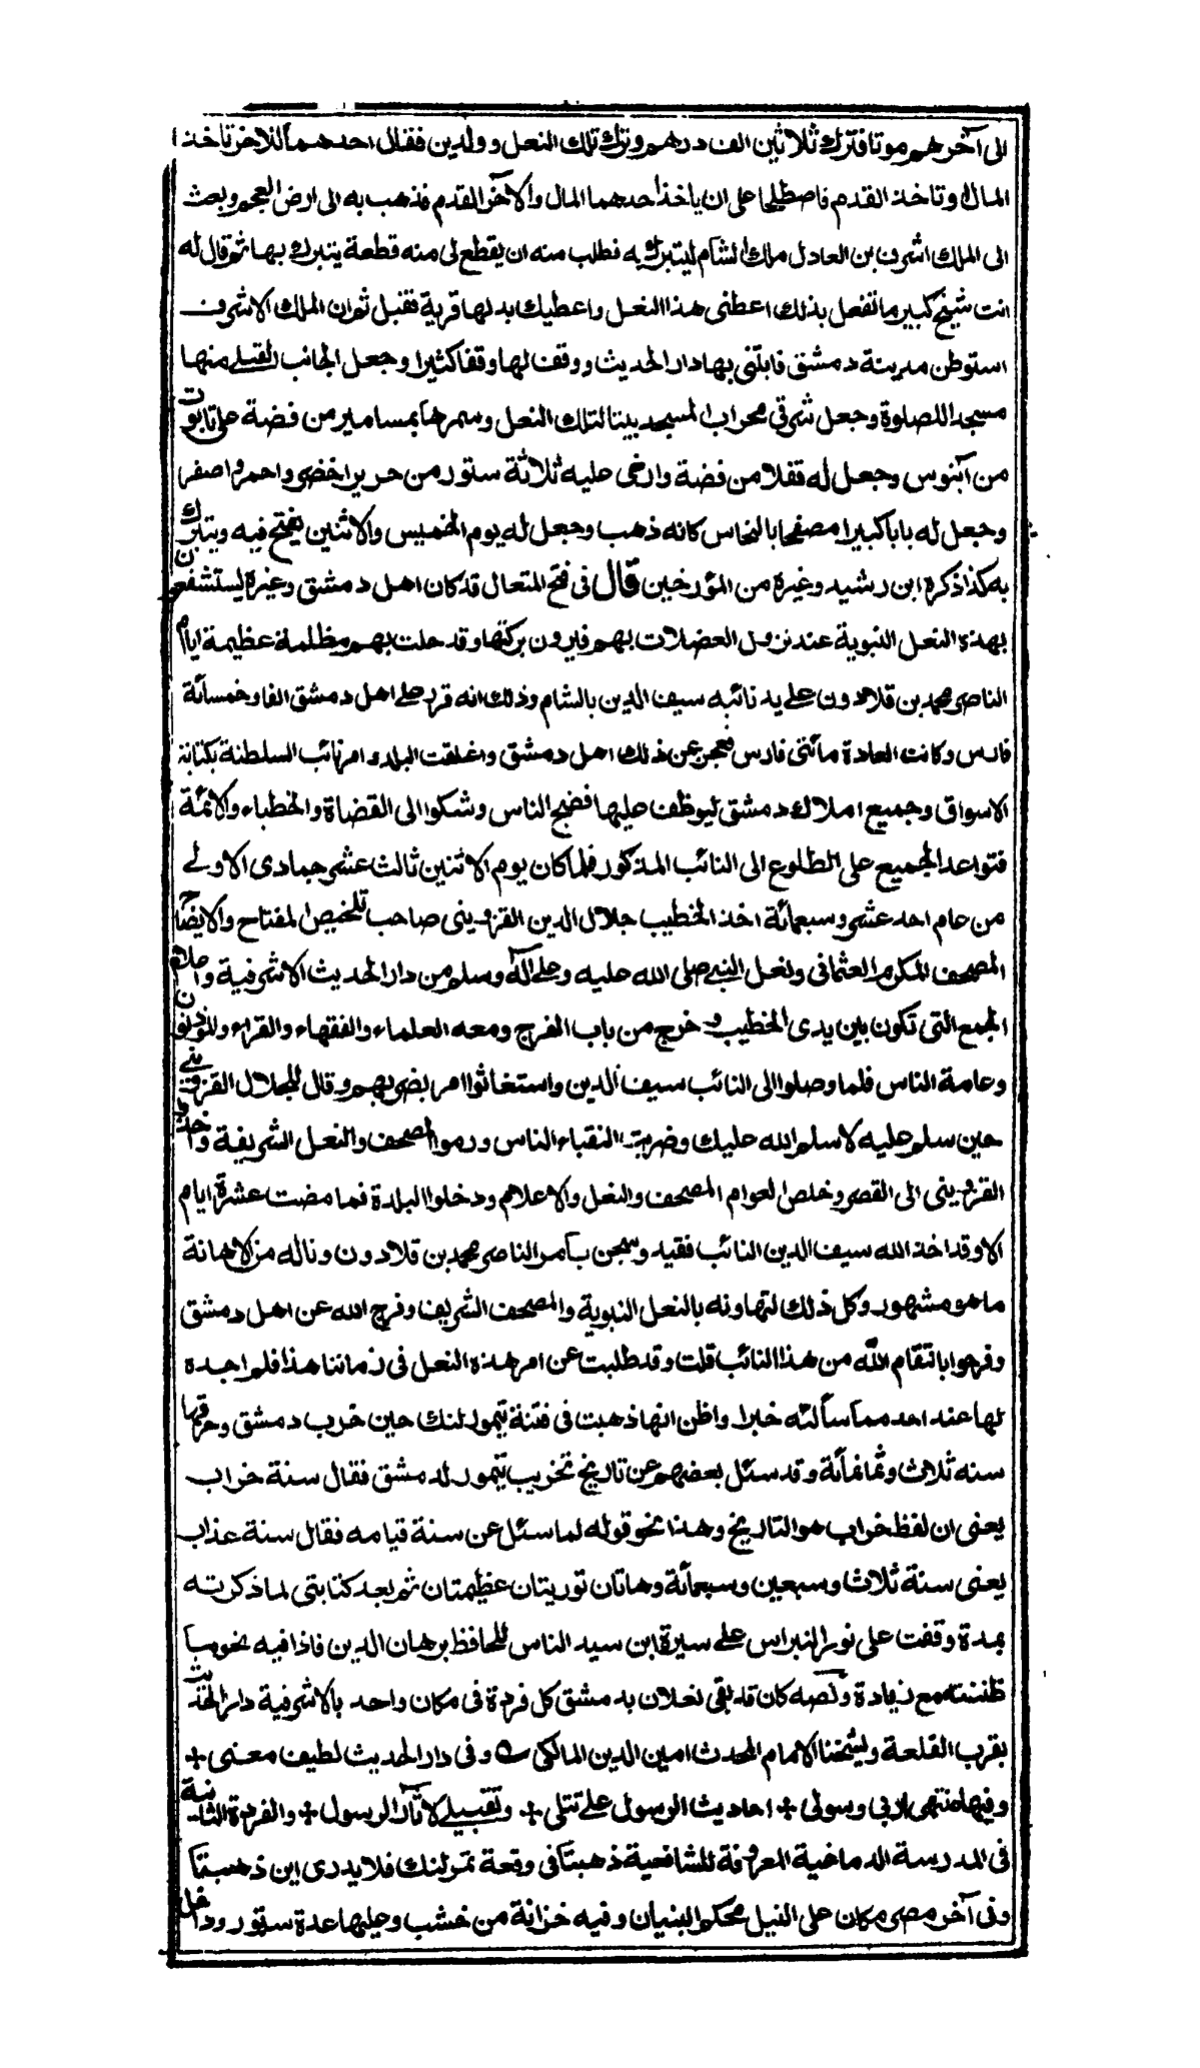 الى آخرهم موتا فترك ثلاثين الف درهم وترك تلك النعل وولدين فقال احدهما للاخر تاخذ
المال وتاخذ القدم فاصطلحا على ان ياخذ احدهما المال والآخر القدم فذهب به الى ارض العجم وبعث
الى الملك اشرف بن العادل ملك الشام ليتبرك به فطلب منه ان يقطع لى منه قطعة يتبرك بها ثم قال له
انت شيخ كبير ما تفعل بذلك اعطنى هذا النعل واعطيك بدلها قرية فقبل ثم ان الملك الاشرف
استوطن مدينة دمشق فابتنى بها دار الحديث ووقف لها وقفا كثيرا وجعل الجانب القبلے منها
مسجدا للصلوة وجعل شرقى محراب المسجد بيتا لتلك النعل وسمرها بمسامير من فضة على تابوت
من آبنوس وجعل له قفلا من فضة وارخى عليه ثلاثة ستور من حرير اخضر واحمر واصفر
وجعل له بابا كبيرا مصفحا بالنحاس كانه ذهب وجعل له يوم الخميس والاثنين يفتح فيه ويتبرك
به كذا ذكره ابن رشيد وغيره من المؤرخين قال فى فتح المتعال قد كان اهل دمشق وغيره يستشفعون
بهذه النعل النبوية عند نزول العضلات بهم فيرون بركتها وقد حلت بهم مظلمة عظيمة ايام
الناصر محمد بن قلادون علے يد نائبه سيف الدين بالشام وذلك انه قرر علے اهل دمشق الفا وخمسمائة
فارس وكانت العادة مائتى فارس فعجز عن ذلك اهل دمشق واغلقت البلد وامر نائب السلطنة بكتابة
الاسواق وجميع املاك دمشق ليوظف عليها فضج الناس وشكوا الى القضاة والخطباء والائمة
فتواعد الجميع على الطلوع الى النائب المذكور فلما كان يوم الاثنين ثالث عشر جمادى الاولے
من عام احد عشر وسبعمائة اخذ الخطيب جلال الدين القزوينى صاحب تلخيص المفتاح والايضاح
المصحف المكرم العثمانى ونعل النبے صلى الله عليه وعلے آله وسلم من دار الحديث الاشرفية واعلام
الجمع التى تكون بين يدى الخطيب وخرج من باب الفرج ومعه العلماء والفقهاء والقراء والمؤذنون
وعامة الناس فلما وصلوا الى النائب سيف الدين واستغاثوا امر بضربهم وقال للجلال القزوينے
حين سلم عليه لا سلم الله عليك وضربت النقباء الناس ورموا المصحف والنعل الشريفة واخذوا
القزوينى الى القصر وخلص العوام المصحف والنعل والاعلام ودخلوا البلدة فما مضت عشرة ايام
الا وقد اخذ الله سيف الدين النائب فقيد وسجن بامر الناصر محمد بن قلادون وناله من الاهانة
ما هو مشهور وكل ذلك لتهاونه بالنعل النبوية والمصحف الشريف وفرج الله عن اهل دمشق
وفرحوا بانتقام الله من هذا النائب قلت وقد طلبت عن امر هذه النعل فى زماننا هذا فلم اجده
لها عند احد مما سألته خبرا واظن انها ذهبت فى فتنة تيمور لنك حين خرب دمشق وحرقها
سنه ثلاث وثمانمأئة وقد سئل بعضهم عن تاريخ تخريب تيمور لدمشق فقال سنة خراب
يعنى ان لفظ خراب هو التاريخ وهذا نحو قوله لما سئل عن سنة قيامه فقال سنة عذاب
يعنى سنة ثلاث وسبعين وسبعمائة وهاتان توريتان عظيمتان ثم بعد كتابتى لما ذكرته
بمدة وقفت على نور النبراس علے سيرة ابن سيد الناس للحافظ برهان الدين فاذا فيه نحو ما
ظننته مع زيادة ونصه كان قد بقى نعلان بدمشق كل فردة فى مكان واحد بالاشرفية دار الحديث
بقرب القلعة ولشيخنا الامام المحدث امين الدين المالكى وفى دار الحديث لطيف معنى +
وفيها منتهى اربى وسولى + احاديث الرسول علے تتلى + وتقبيلے لآثار الرسول + والفردة الثانية
فى المدرسة الدماغية المعروفة للشافعية ذهبتا فى وقعة تمرلنك فلا يدرى اين ذهبتا
وفى آخر مصر مكان على النيل محكم البنيان وفيه خزانة من خشب وعليها عدة ستور وداخل